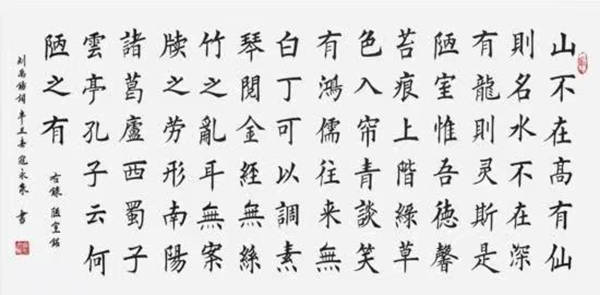 山不在高有仙
則名水不在深
有龍則灵斯是
陋室惟吾德馨
苔痕上階緑草
色入帘青談笑
有鴻儒往来無
白丁可以調素
琴閲金經無絲
竹之亂耳無案
牍之劳形南陽
諸葛廬西蜀子
雲亭孔子云何
陋之有
右錄陋室銘
刘禹錫詞辛丑春寇永泉書